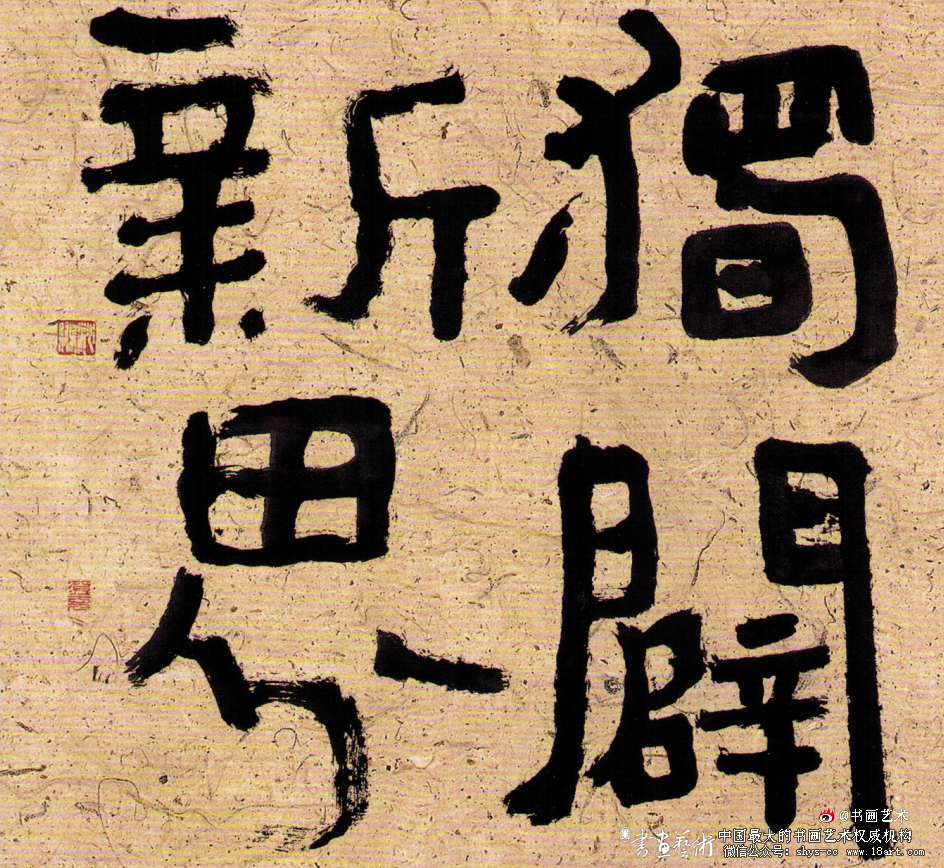 獨闢
新思
@书画艺术
書畫藝術
中国最大的书画艺术权威机构
微信公众号：shys-cc www.18art.com